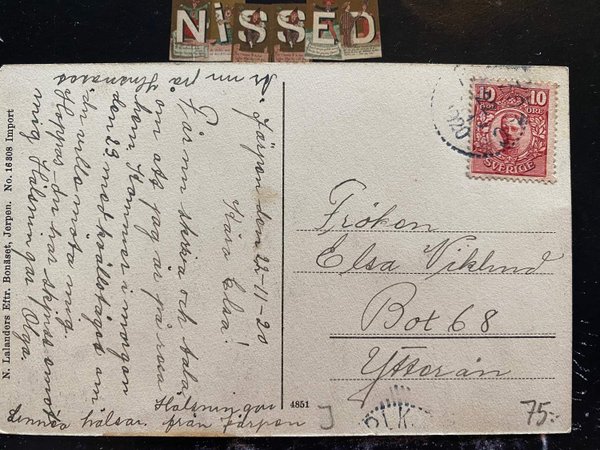 NiSSED
N. Lalanders Eftr. Bonäset, Jerpen. No. 16308 Import
Järpen den 22-11-20
Kära Elsa!
Får nu skriva och tala
om att jag är på resa
hem Kommer i morgon
den 23 med kvällståget om
du vill möta mig.
Hoppas du har
mig Hälsningar Olga.
nu på
Hälsningar
hälsar från Järpen
4851
10 10
ÖRE
SVERIGE
1920
Fröken
Elsa Viklund
Box 68
Ytterån
PLK
75:-